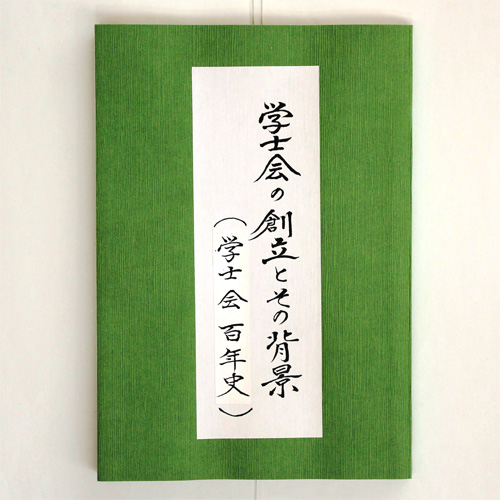 学士会の創立とその背景
（学士会百年史）